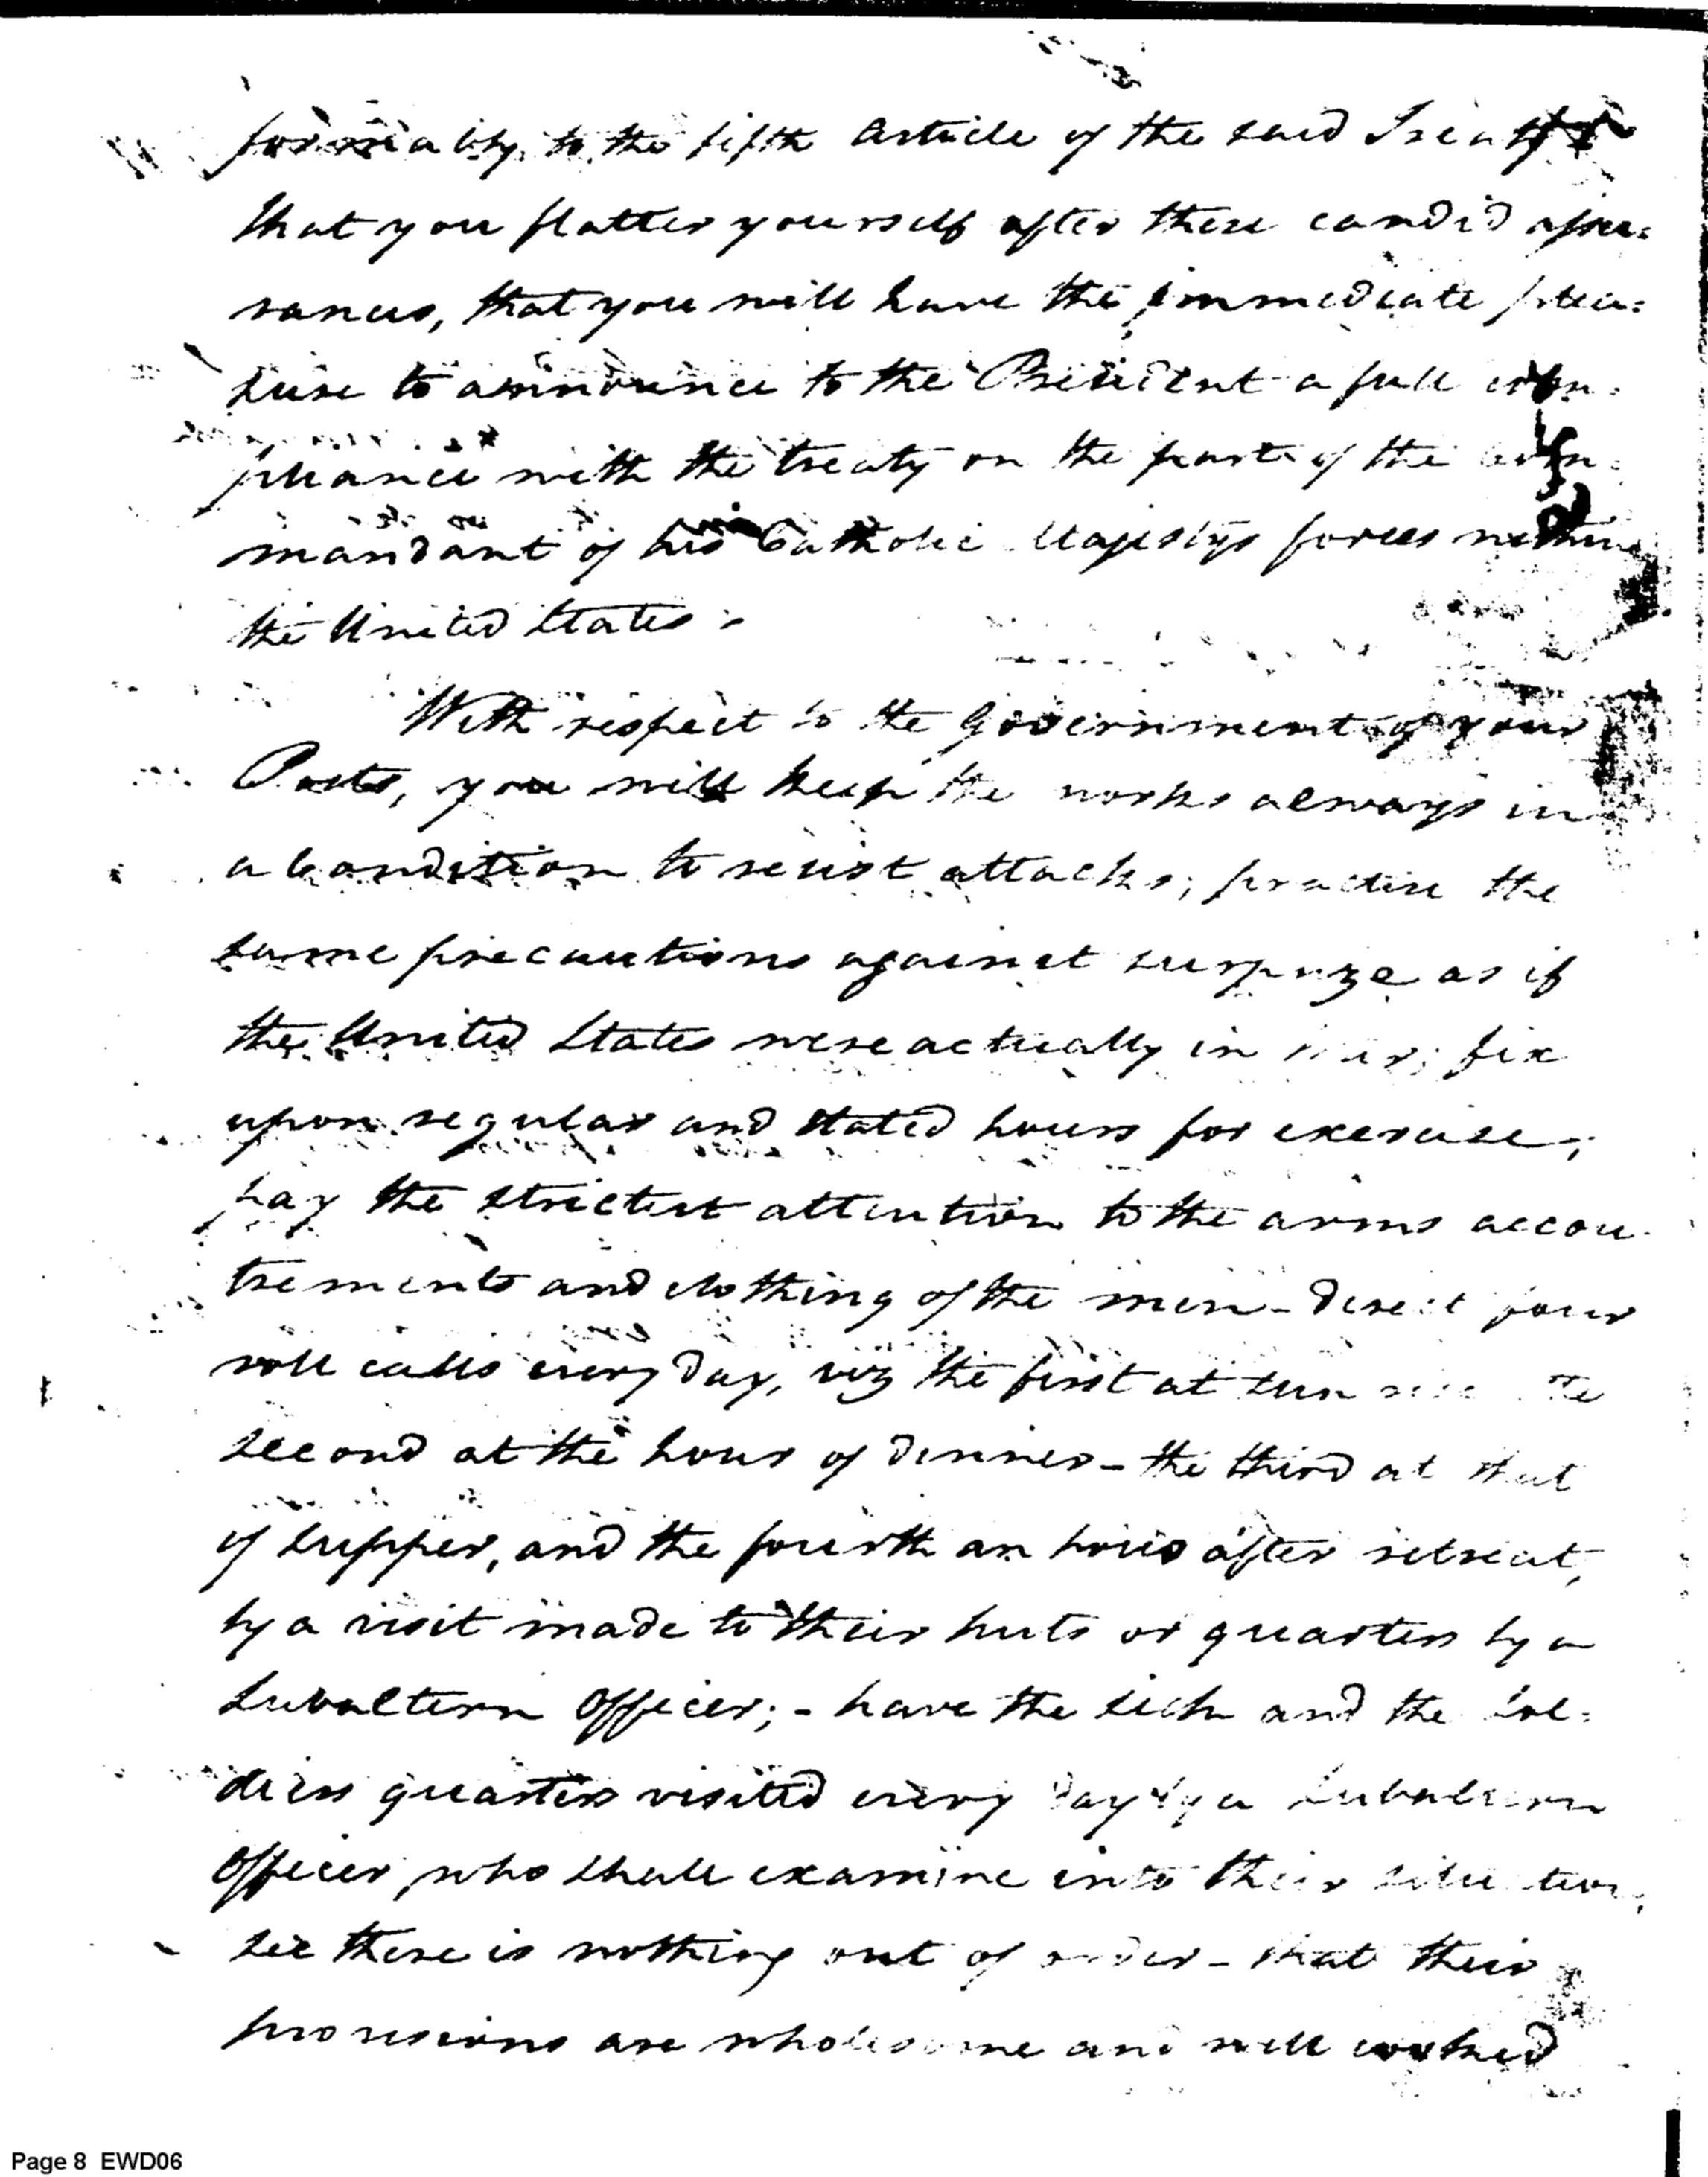 formably to the fifth article of the said Treaty
that you flatter yourself after these candid assu=
rances, that you will have the immediate plea=
sure to announce to the President a full com=
pliance with the treaty on the part of the com=
mandant of his Catholic Majestys forces within
the United States.
With respect to the Government of your
Posts, you will keep the works always in
a Condition to resist attacks; practise the
same precautions against surprize as if
the United States were actually in war; fix
upon regular and stated hours for exercise;
pay the strictest attention to the arms accou-
trements and clothing of the men - direct four
roll calls every day, viz the first at sun rise the
second at the hour of dinner - the third at that
of supper, and the fourth an hour after retreat,
by a visit made to their huts or quarters by a
Subaltern Officer; - have the sick and the sol=
diers quarters visited every day by a Subaltern
Officer, who shall examine into their situation,
see there is nothing out of order - that their
provisions are wholesome and well cooked
Page 8 EWD06